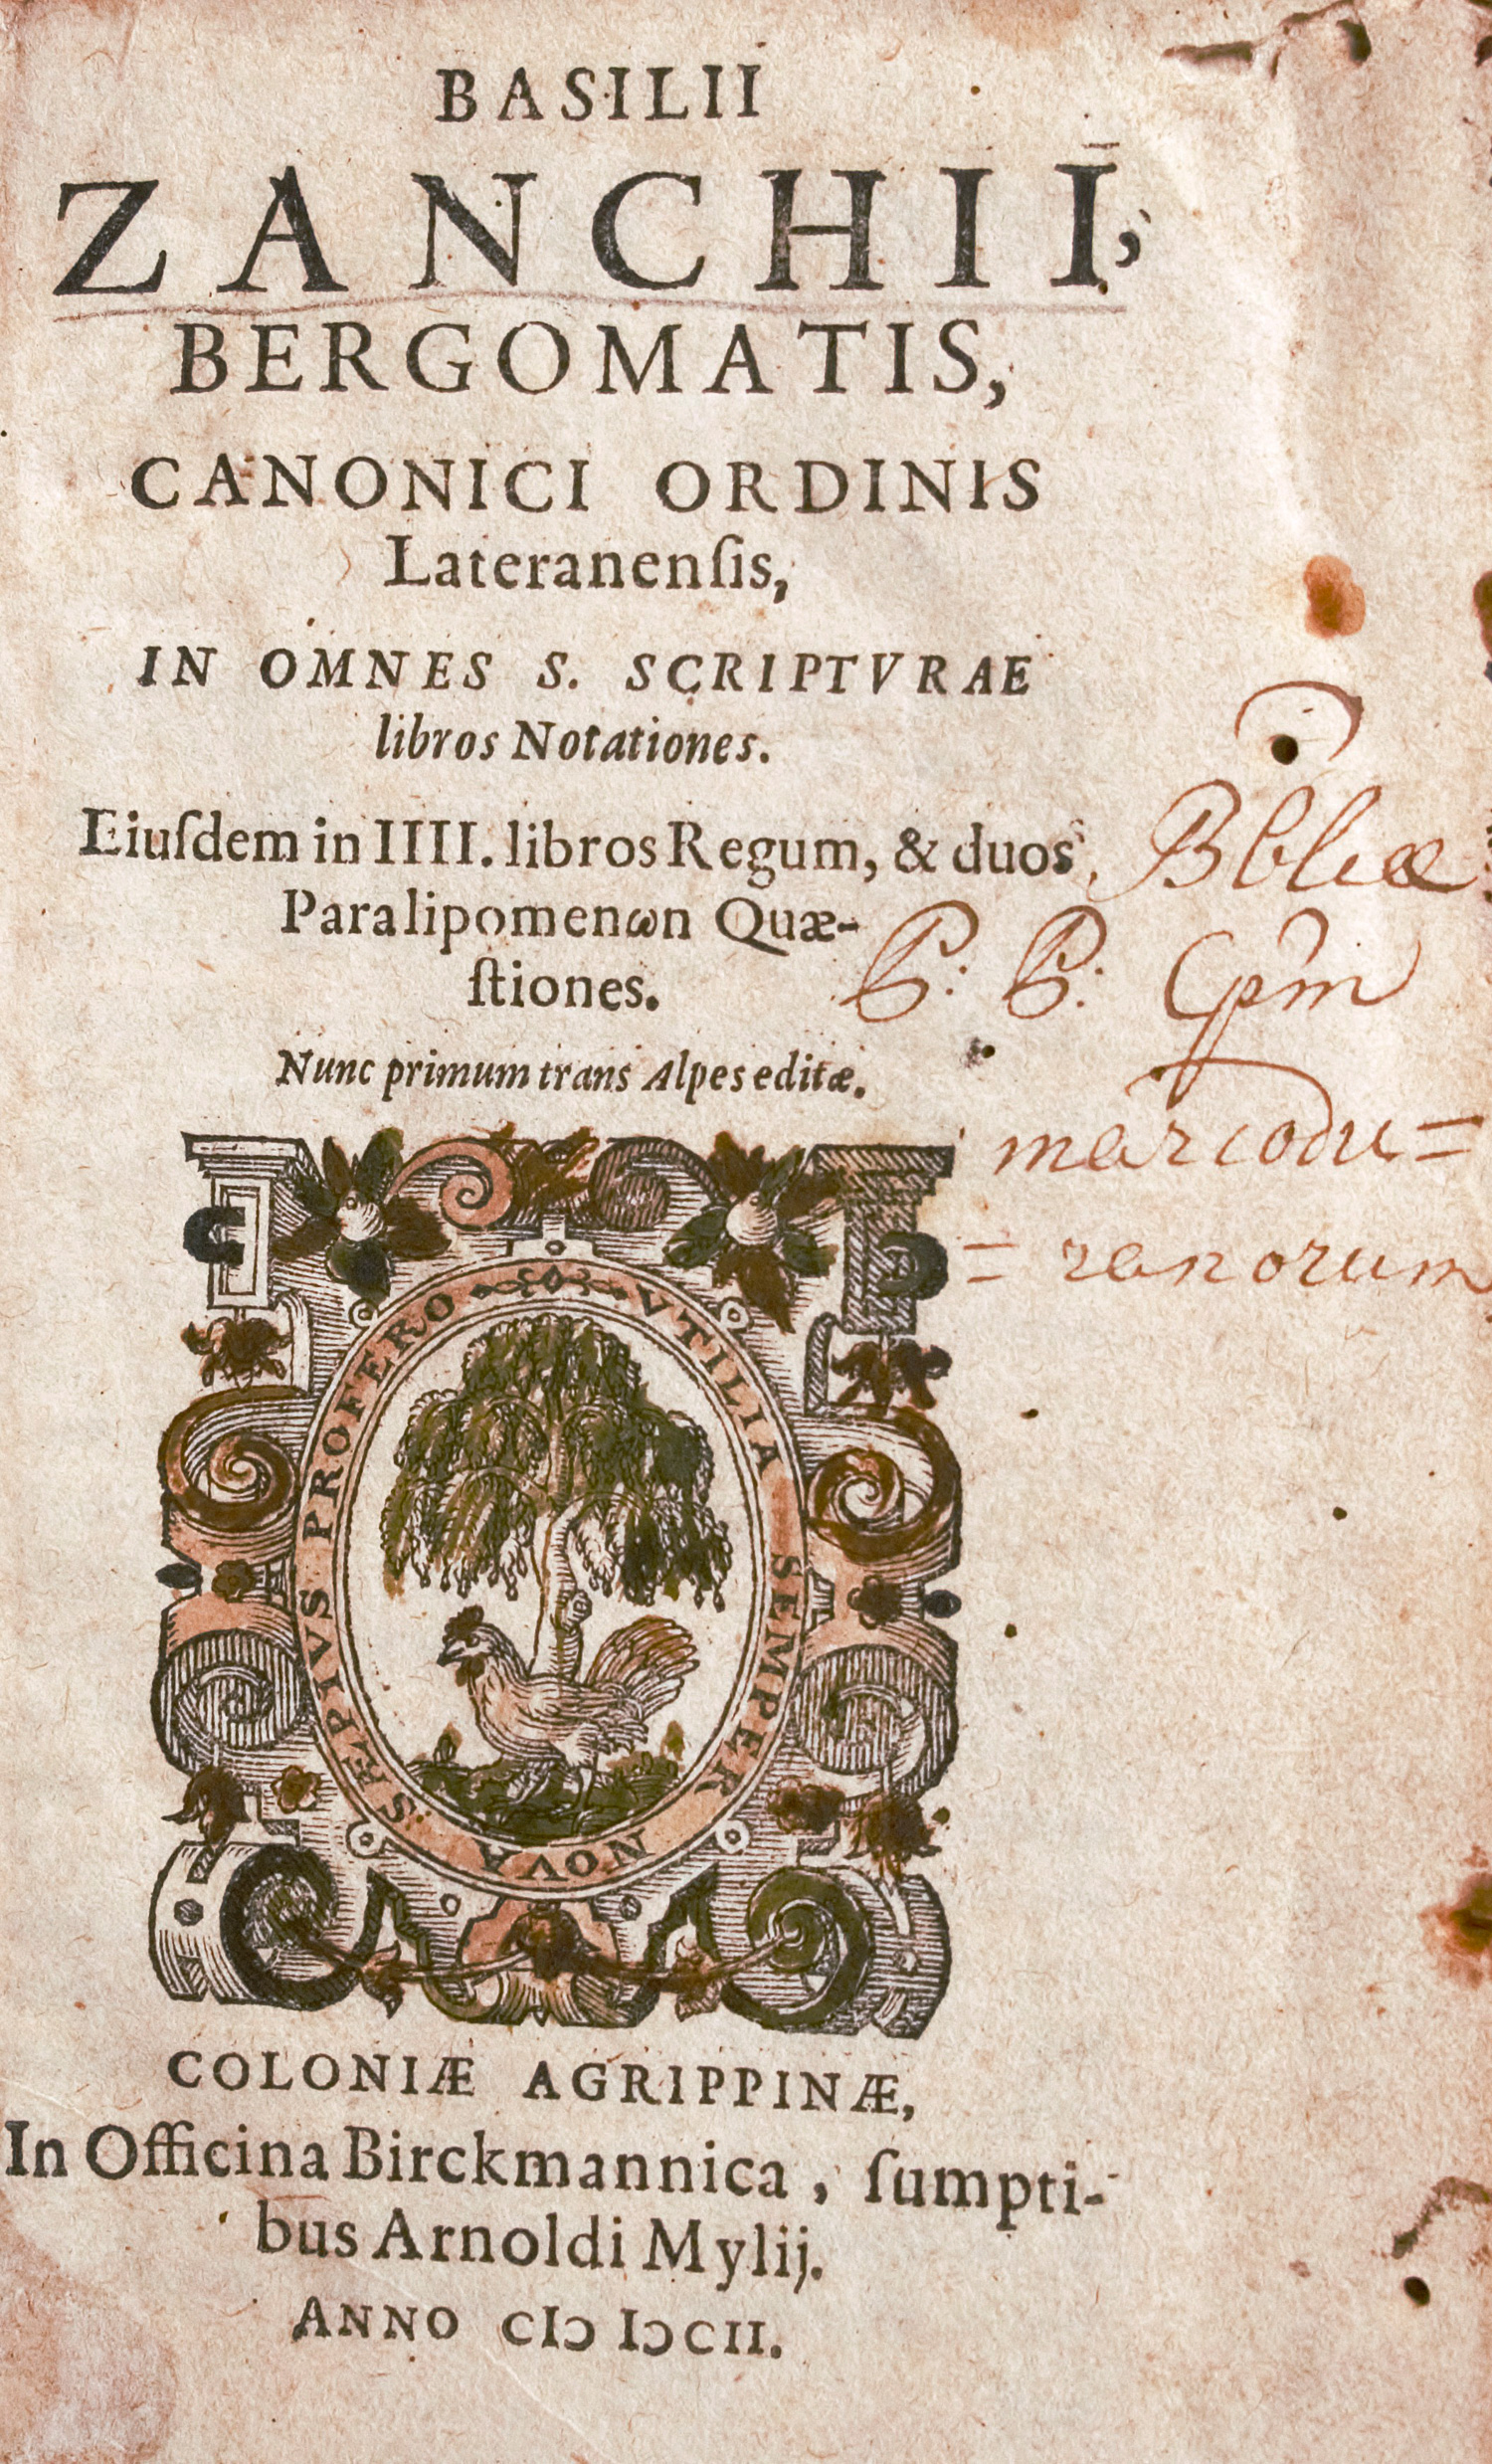 BASILII
ZANCHII,
BERGOMATIS,
CANONICI ORDINIS
Lateranenſis,
IN OMNES S. SCRIPTVRAE
libros Notationes.
Eiuſdem in IIII. libros Regum, & duos
Paralipomenωn Quæ-
ſtiones.
Nunc primum trans Alpes editæ.
P: P:
marcodu=
=ranorum
VTILIA SEMPER NOVA SÆPIVS PROFERO
COLONIÆ AGRIPPINÆ,
In Officina Birckmannica, ſumpti-
bus Arnoldi Mylij.
ANNO CIↃ IↃCII.